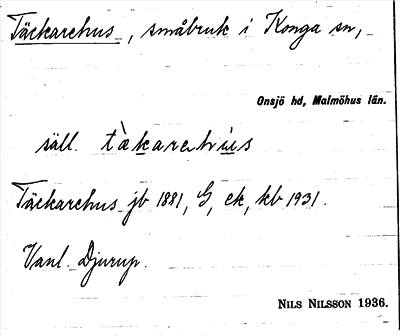 Täckarehus, småbruk i Konga sn,
Onsjö hd, Malmöhus län.
säll. tàkarehús
Täckarehus jb 1881, G, ek, kb 1931.
Vanl. Djurup.
NILS NILSSON 1936.